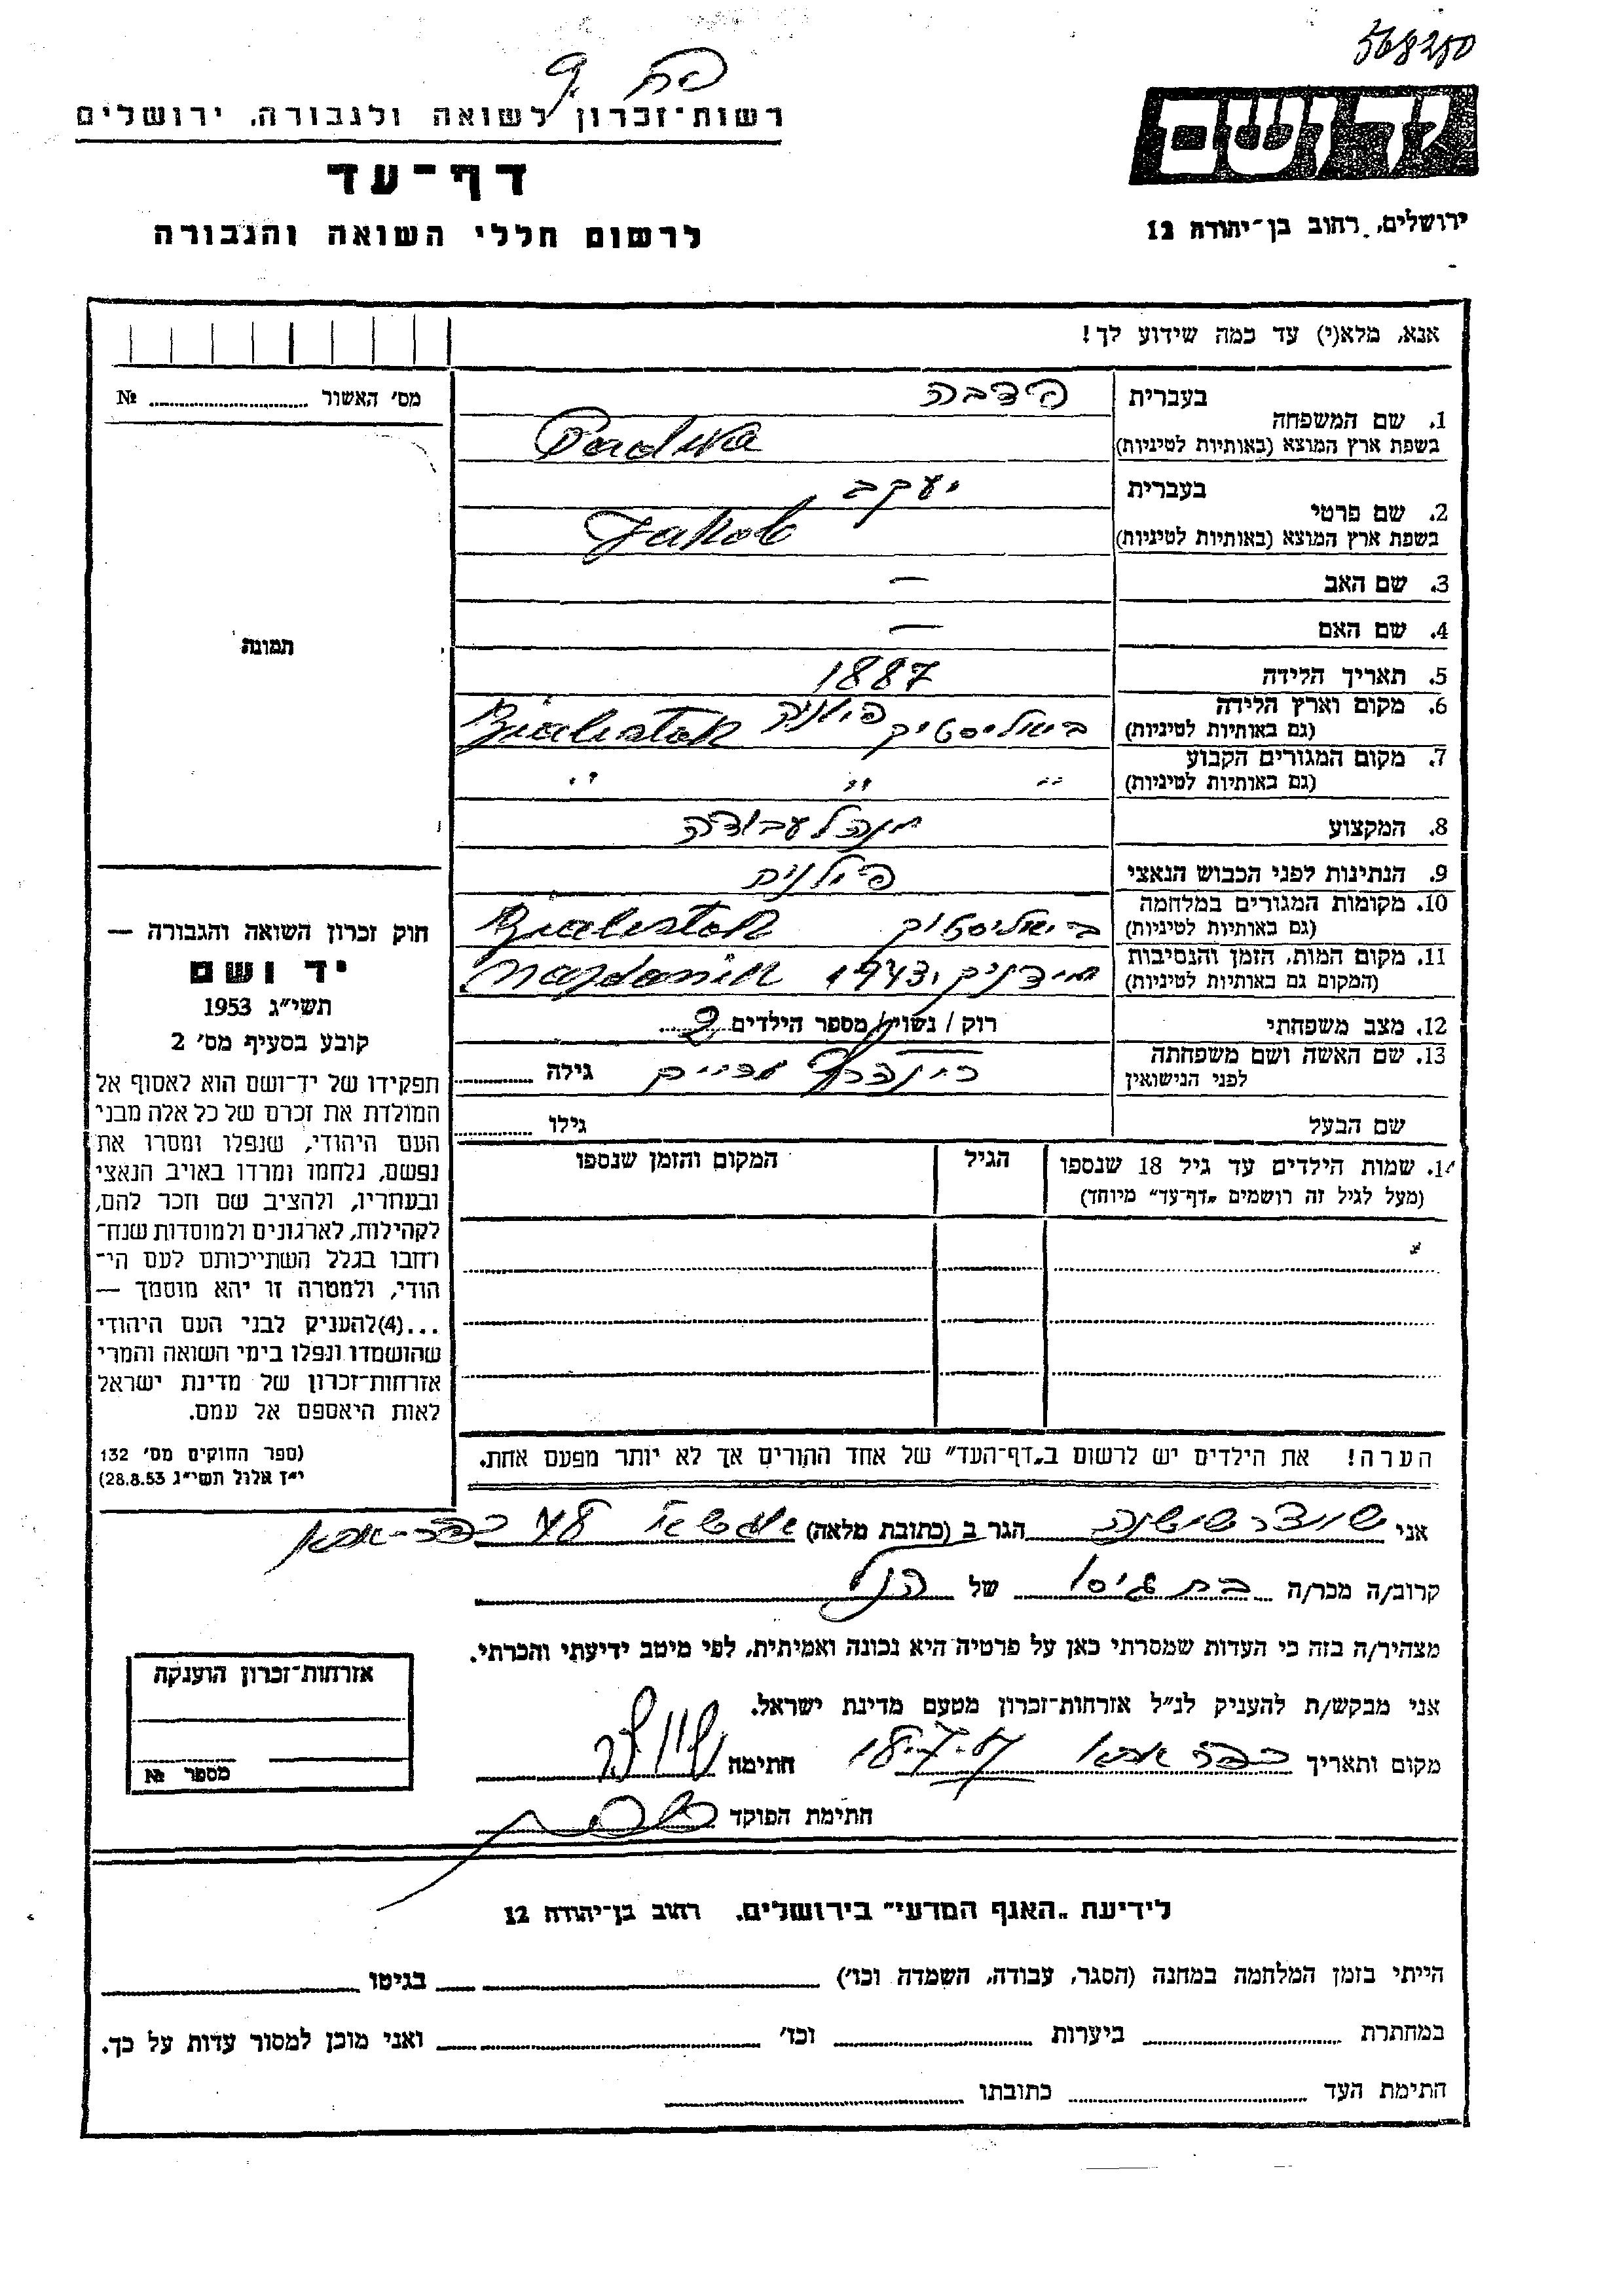 568250
פח 9
רשות־זכרון לשואה ולגבורה. ירושלים
יד ושם
דף־עד
לרשום חללי השואה והגבורה
ירושלים, רחוב בן־יהודה 12
אנא, מלא(י) עד כמה שידוע לך!
מס׳ האשור № ..........
בעברית פדבה
1. שם המשפחה
בשפת ארץ המוצא (באותיות לטיניות) Padwa
בעברית יעקב
2. שם פרטי
בשפת ארץ המוצא (באותיות לטיניות) Jakob
3. שם האב —
4. שם האם —
תמונה
5. תאריך הלידה 1887
6. מקום וארץ הלידה
(גם באותיות לטיניות) ביאליסטוק פולניה Bialistok
7. מקום המגורים הקבוע
(גם באותיות לטיניות) " " "
8. המקצוע מנהל עבודה
9. הנתינות לפני הכבוש הנאצי פולנית
10. מקומות המגורים במלחמה
(גם באותיות לטיניות) ביאליסטוק Bialistok
11. מקום המות, הזמן והנסיבות
(המקום גם באותיות לטיניות) מידניק, 1943 Majdanik
12. מצב משפחתי רוק / נשוי / מספר הילדים 2
13. שם האשה ושם משפחתה
לפני הנישואין גילה ..........
שם הבעל גילו ..........
14. שמות הילדים עד גיל 18 שנספו
(מעל לגיל זה רושמים "דף־עד" מיוחד)
הגיל
המקום והזמן שנספו
חוק זכרון השואה והגבורה —
יד ושם
תשי״ג 1953
קובע בסעיף מס׳ 2
תפקידו של יד־ושם הוא לאסוף אל
המולדת את זכרם של כל אלה מבני
העם היהודי, שנפלו ומסרו את
נפשם, נלחמו ומרדו באויב הנאצי
ובעוזריו, ולהציב שם וזכר להם,
לקהילות, לארגונים ולמוסדות שנח־
רחבו בגלל השתייכותם לעם הי־
הודי, ולמטרה זו יהא מוסמך —
...(4)להעניק לבני העם היהודי
שהושמדו ונפלו בימי השואה והמרי
אזרחות־זכרון של מדינת ישראל
לאות היאספם אל עמם.
(ספר החוקים מס׳ 132
י״ז אלול תשי״ג 28.8.53)
הערה! את הילדים יש לרשום ב"דף־העד" של אחד ההורים אך לא יותר מפעם אחת.
אני שניצר שושנה הגר ב (כתובת מלאה) 48 כפר־אתא
קרוב/ה מכר/ה בת גיסו של הנ״ל
מצהיר/ה בזה כי העדות שמסרתי כאן על פרטיה היא נכונה ואמיתית, לפי מיטב ידיעתי והכרתי.
אני מבקש/ת להעניק לנ״ל אזרחות־זכרון מטעם מדינת ישראל.
מקום ותאריך כפר אתא חתימה
חתימת הפוקד
אזרחות־זכרון הוענקה
מספר №
לידיעת "האגף המדעי" בירושלים. רחוב בן־יהודה 12
הייתי בזמן המלחמה במחנה (הסגר, עבודה, השמדה וכד׳) .......... בגיטו ..........
במחתרת .......... ביערות .......... וכד׳ .......... ואני מוכן למסור עדות על כך.
חתימת העד .......... כתובתו ..........